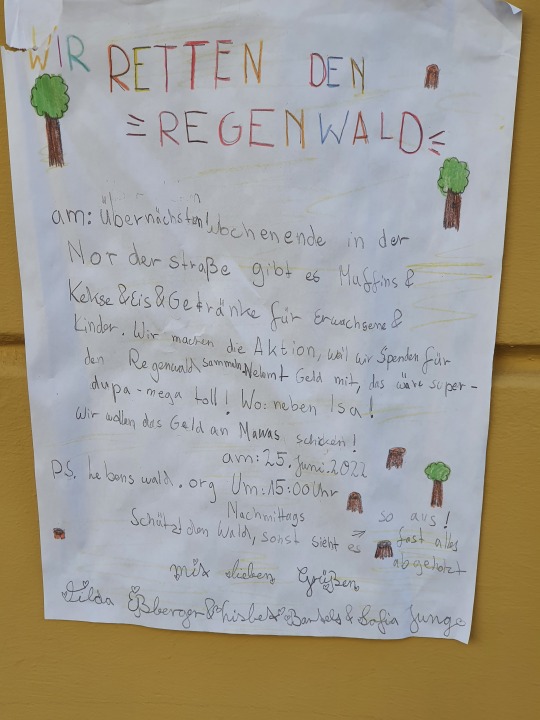 WIR RETTEN DEN
REGENWALD
am: Übernächsten Wochenende in der
Norderstraße gibt es Muffins &
Kekse & Eis & Getränke für Erwachsene &
Kinder. Wir machen die Aktion, weil wir Spenden für
den Regenwald sammeln. Nehmt Geld mit, das wäre super-
dupa-mega toll! Wo: neben Isa!
Wir wollen das Geld an Mawas schicken!
am: 25. Juni. 2022
PS. Lebenswald.org Um: 15:00 Uhr
Nachmittags
Schützt den Wald, sonst sieht es so aus!
fast alles
abgeholzt
mit lieben Grüßen
Tilda & Lisbet & Sofia Junge